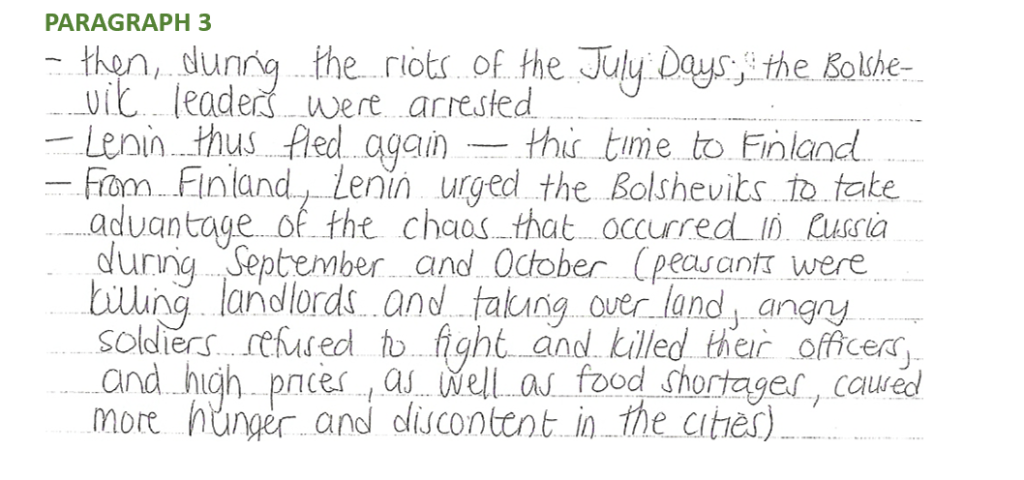 PARAGRAPH 3
- then, during the riots of the July Days, the Bolshe-
vik leaders were arrested
- Lenin thus fled again — this time to Finland
- From Finland, Lenin urged the Bolsheviks to take
advantage of the chaos that occurred in Russia
during September and October (peasants were
killing landlords and taking over land, angry
soldiers refused to fight and killed their officers,
and high prices, as well as food shortages, caused
more hunger and discontent in the cities)